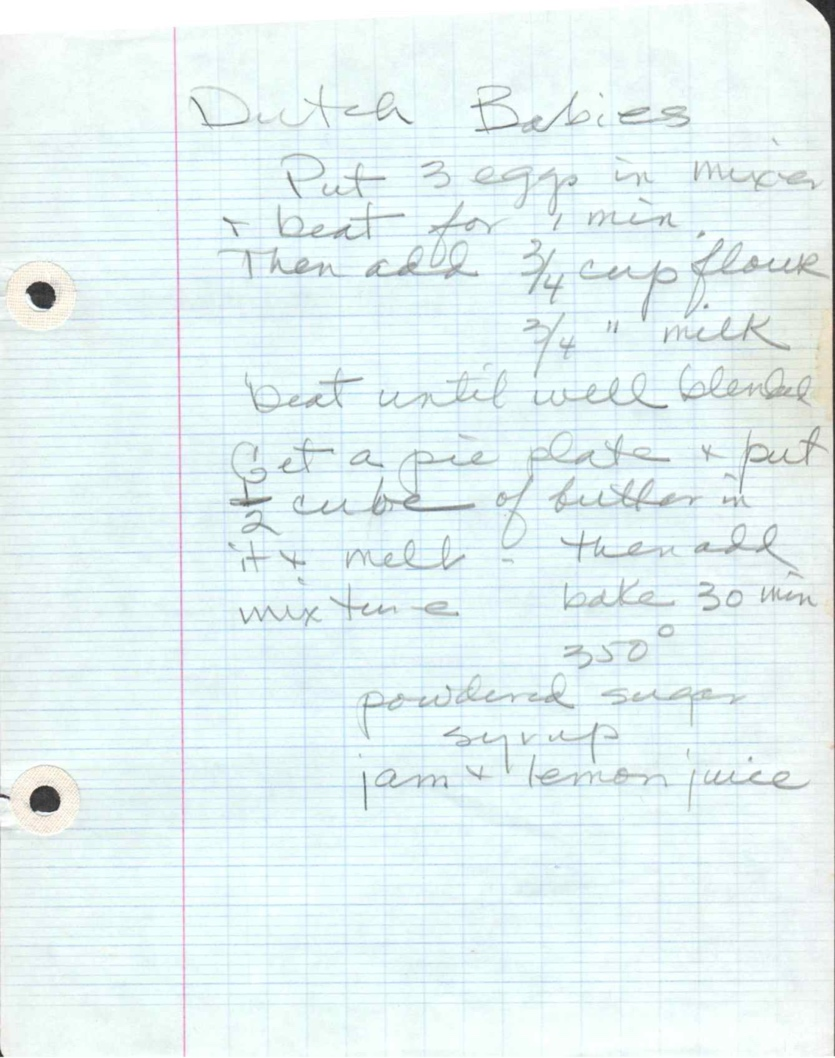 Dutch Babies
Put 3 eggs in mixer
+ beat for 1 min.
Then add 3/4 cup flour
3/4 " milk
beat until well blended
Get a pie plate + put
1/2 cube of butter in
it + melt - then add
mixture bake 30 min
350°
powdered sugar
syrup
jam + lemon juice